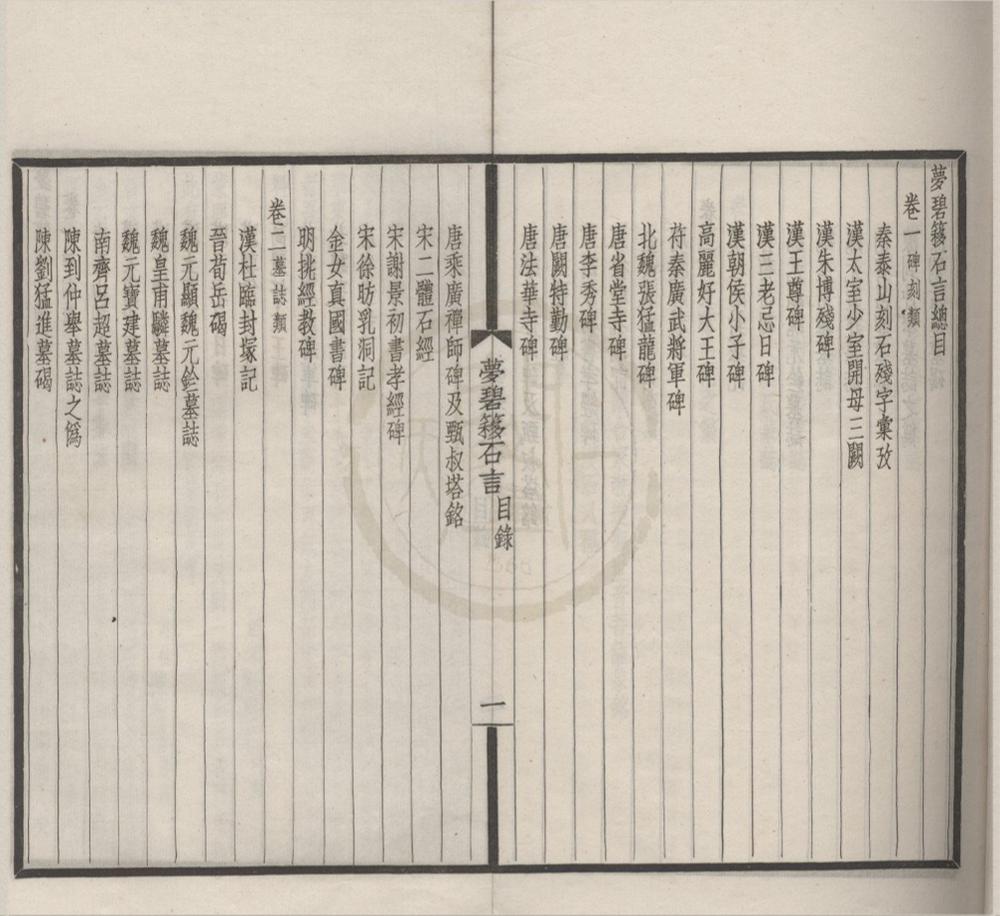 夢碧簃石言總目
卷一 碑刻類
秦泰山刻石殘字彙攷
漢太室少室開母三闕
漢朱博殘碑
漢王尊碑
漢三老忌日碑
漢朝侯小子碑
高麗好大王碑
苻秦廣武將軍碑
北魏張猛龍碑
唐省堂寺碑
唐李秀碑
唐闕特勤碑
唐法華寺碑
夢碧簃石言 目錄
一
唐乘廣禪師碑及甄叔塔銘
宋二體石經
宋謝景初書孝經碑
宋徐昉乳洞記
金女真國書碑
明挑經教碑
卷二 墓誌類
漢杜臨封塚記
晉荀岳碣
魏元顯魏元鉁墓誌
魏皇甫驎墓誌
魏元寶建墓誌
南齊呂超墓誌
陳到仲舉墓誌之僞
陳劉猛進墓碣